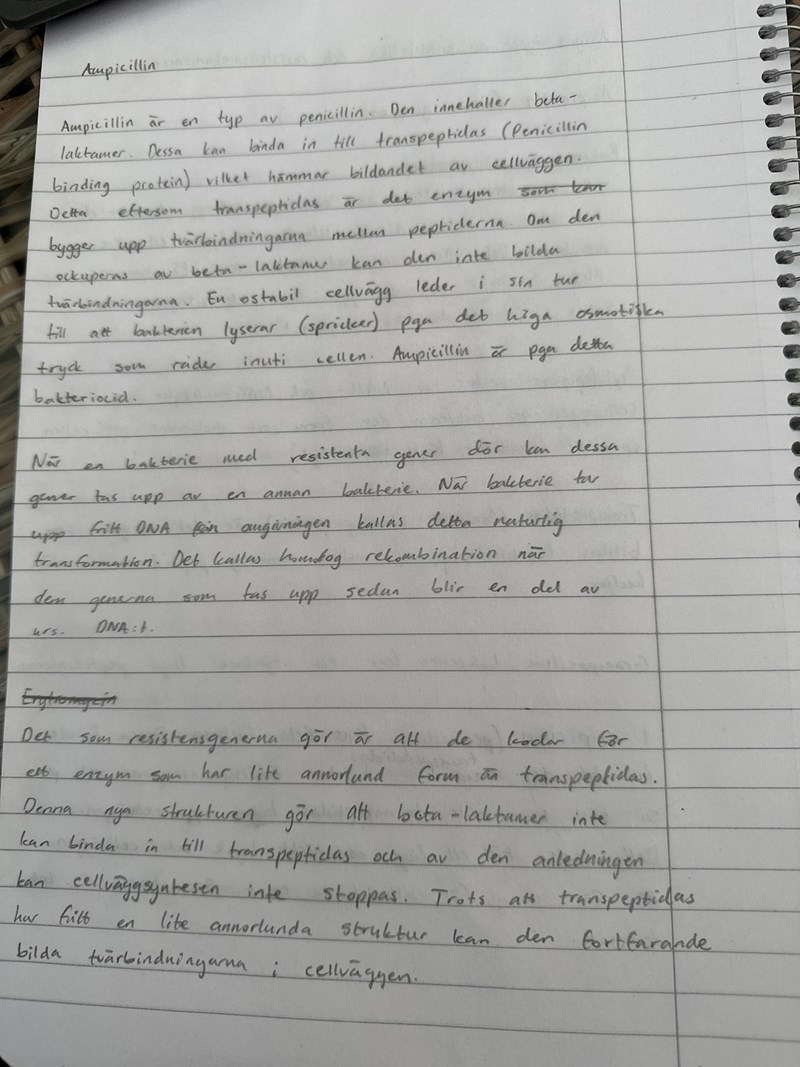 Ampicillin
Ampicillin är en typ av penicillin. Den innehåller beta-
laktamer. Dessa kan binda in till transpeptidas (Penicillin
binding protein) vilket hämmar bildandet av cellväggen.
Detta eftersom transpeptidas är det enzym som kan
bygger upp tvärbindningarna mellan peptiderna. Om den
ockuperas av beta-laktamer kan den inte bilda
tvärbindningarna. En ostabil cellvägg leder i sin tur
till att bakterien lyserar (spricker) pga det höga osmotiska
tryck som råder inuti cellen. Ampicillin är pga detta
bakteriocid.
När en bakterie med resistenta gener dör kan dessa
gener tas upp av en annan bakterie. När bakterie tar
upp fritt DNA från omgivningen kallas detta naturlig
transformation. Det kallas homolog rekombination när
den generna som tas upp sedan blir en del av
urs. DNA:t.
Erytromycin
Det som resistensgenerna gör är att de kodar för
ett enzym som har lite annorlund form än transpeptidas.
Denna nya strukturen gör att beta-laktamer inte
kan binda in till transpeptidas och av den anledningen
kan cellväggsyntesen inte stoppas. Trots att transpeptidas
har fått en lite annorlunda struktur kan den fortfarande
bilda tvärbindningarna i cellväggen.